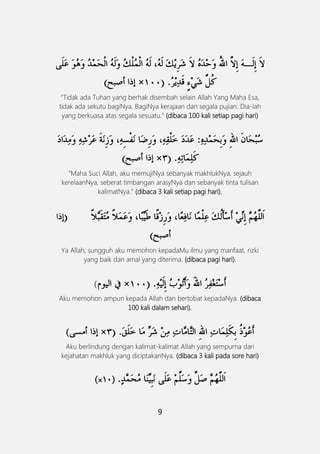 لَا إِلَـهَ إِلاَّ اللهُ وَحْدَهُ لَا شَرِيْكَ لَهُ، لَهُ الْمُلْكُ وَلَهُ الْحَمْدُ وَهُوَ عَلَى
كُلِّ شَيْءٍ قَدِيْرُ. (١٠٠× إذا أصبح)
“Tidak ada Tuhan yang berhak disembah selain Allah Yang Maha Esa,
tidak ada sekutu bagiNya. BagiNya kerajaan dan segala pujian. Dia-lah
yang berkuasa atas segala sesuatu.” (dibaca 100 kali setiap pagi hari)
سُبْحَانَ اللهِ وَبِحَمْدِهِ: عَدَدَ خَلْقِهِ، وَرِضَا نَفْسِهِ، وَزِنَةَ عَرْشِهِ وَمِدَادَ
كَلِمَاتِهِ. (٣× إذا أصبح)
“Maha Suci Allah, aku memujiNya sebanyak makhlukNya, sejauh
kerelaanNya, seberat timbangan arasyNya dan sebanyak tinta tulisan
kalimatNya.” (dibaca 3 kali setiap pagi hari).
اَللَّهُمَّ إِنِّيْ أَسْأَلُكَ عِلْمًا نَافِعًا، وَرِزْقًا طَيِّبًا، وَعَمَلاً مُتَقَبَّلاً (إذا
أصبح)
Ya Allah, sungguh aku memohon kepadaMu ilmu yang manfaat, rizki
yang baik dan amal yang diterima. (dibaca pagi hari).
أَسْتَغْفِرُ اللهَ وَأَتُوْبُ إِلَيْهِ. (١٠٠× في اليوم)
Aku memohon ampun kepada Allah dan bertobat kepadaNya. (dibaca
100 kali dalam sehari).
أَعُوْذُ بِكَلِمَاتِ اللهِ التَّامَّاتِ مِنْ شَرِّ مَا خَلَقَ. (٣× إذا أمسى)
Aku berlindung dengan kalimat-kalimat Allah yang sempurna dari
kejahatan makhluk yang diciptakanNya. (dibaca 3 kali pada sore hari)
اَللَّهُمَّ صَلِّ وَسَلِّمْ عَلَى نَبِيِّنَا مُحَمَّدٍ. (١٠×)
9